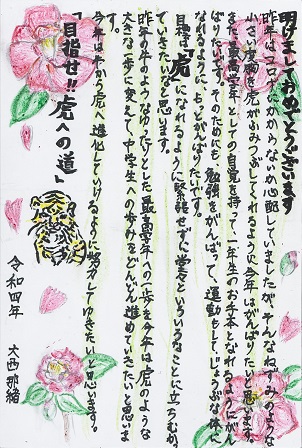 明けましておめでとうございます
昨年はコロナにかからないか心配していましたが、そんなねずみのような
小さい度胸を虎がふみつぶしてくれるように今年はがんばりたいと思います。
また、最高学年としての自覚を持って一年生のお手本となれるようにがん
ばりたいです。そのためにも、勉強をがんばって、運動もしてじょうぶな体に
なれるように、もっとがんばりたいです。
目標は「虎」になれるように緊張せずに堂々といろいろなことに立ちむかっ
ていきたいなと思います。
昨年の牛のようなゆったりとした最高学年への一歩を今年は虎のような
大きな一歩に変えて、中学生への歩みをどんどん進めていきたいと思いま
す。
今年は牛から虎へ進化していけるように努力してゆきたいと思います。
「目指せ!!虎への道」
令和四年
大西那緒